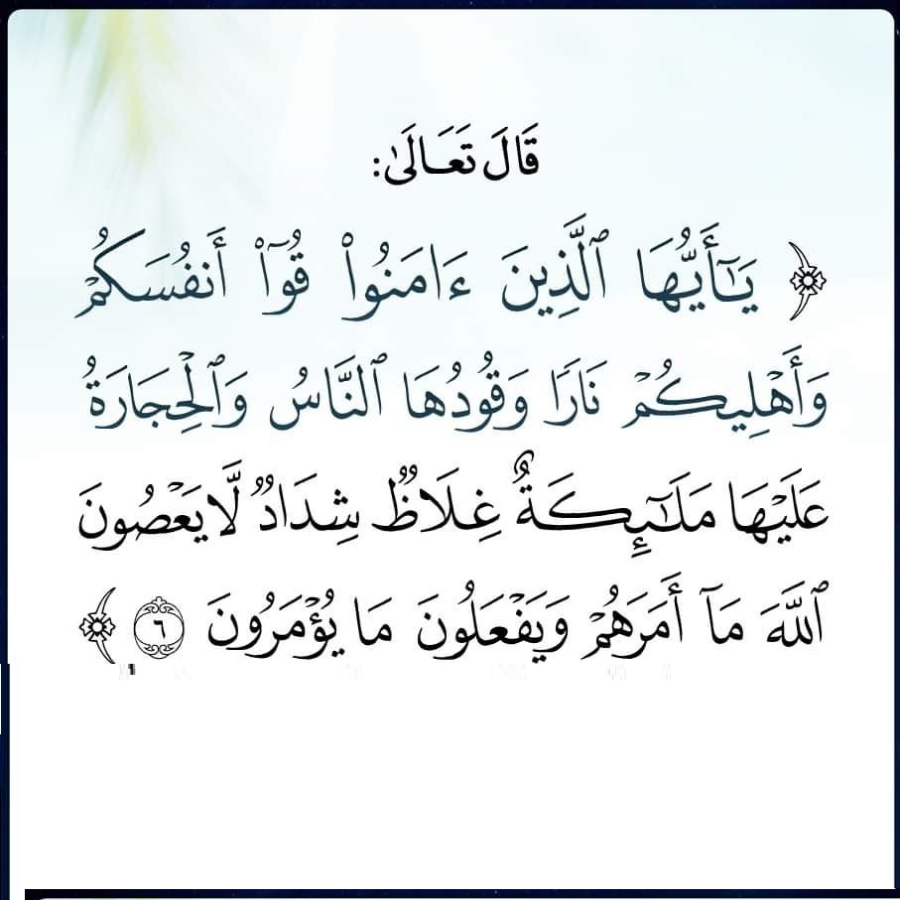 قَالَ تَعَـالَىٰ:
﴿ يَـٰٓأَيُّهَا ٱلَّذِينَ ءَامَنُوا۟ قُوٓا۟ أَنفُسَكُمْ
وَأَهْلِيكُمْ نَارًا وَقُودُهَا ٱلنَّاسُ وَٱلْحِجَارَةُ
عَلَيْهَا مَلَـٰٓئِكَةٌ غِلَاظٌ شِدَادٌ لَّا يَعْصُونَ
ٱللَّهَ مَآ أَمَرَهُمْ وَيَفْعَلُونَ مَا يُؤْمَرُونَ ٦ ﴾